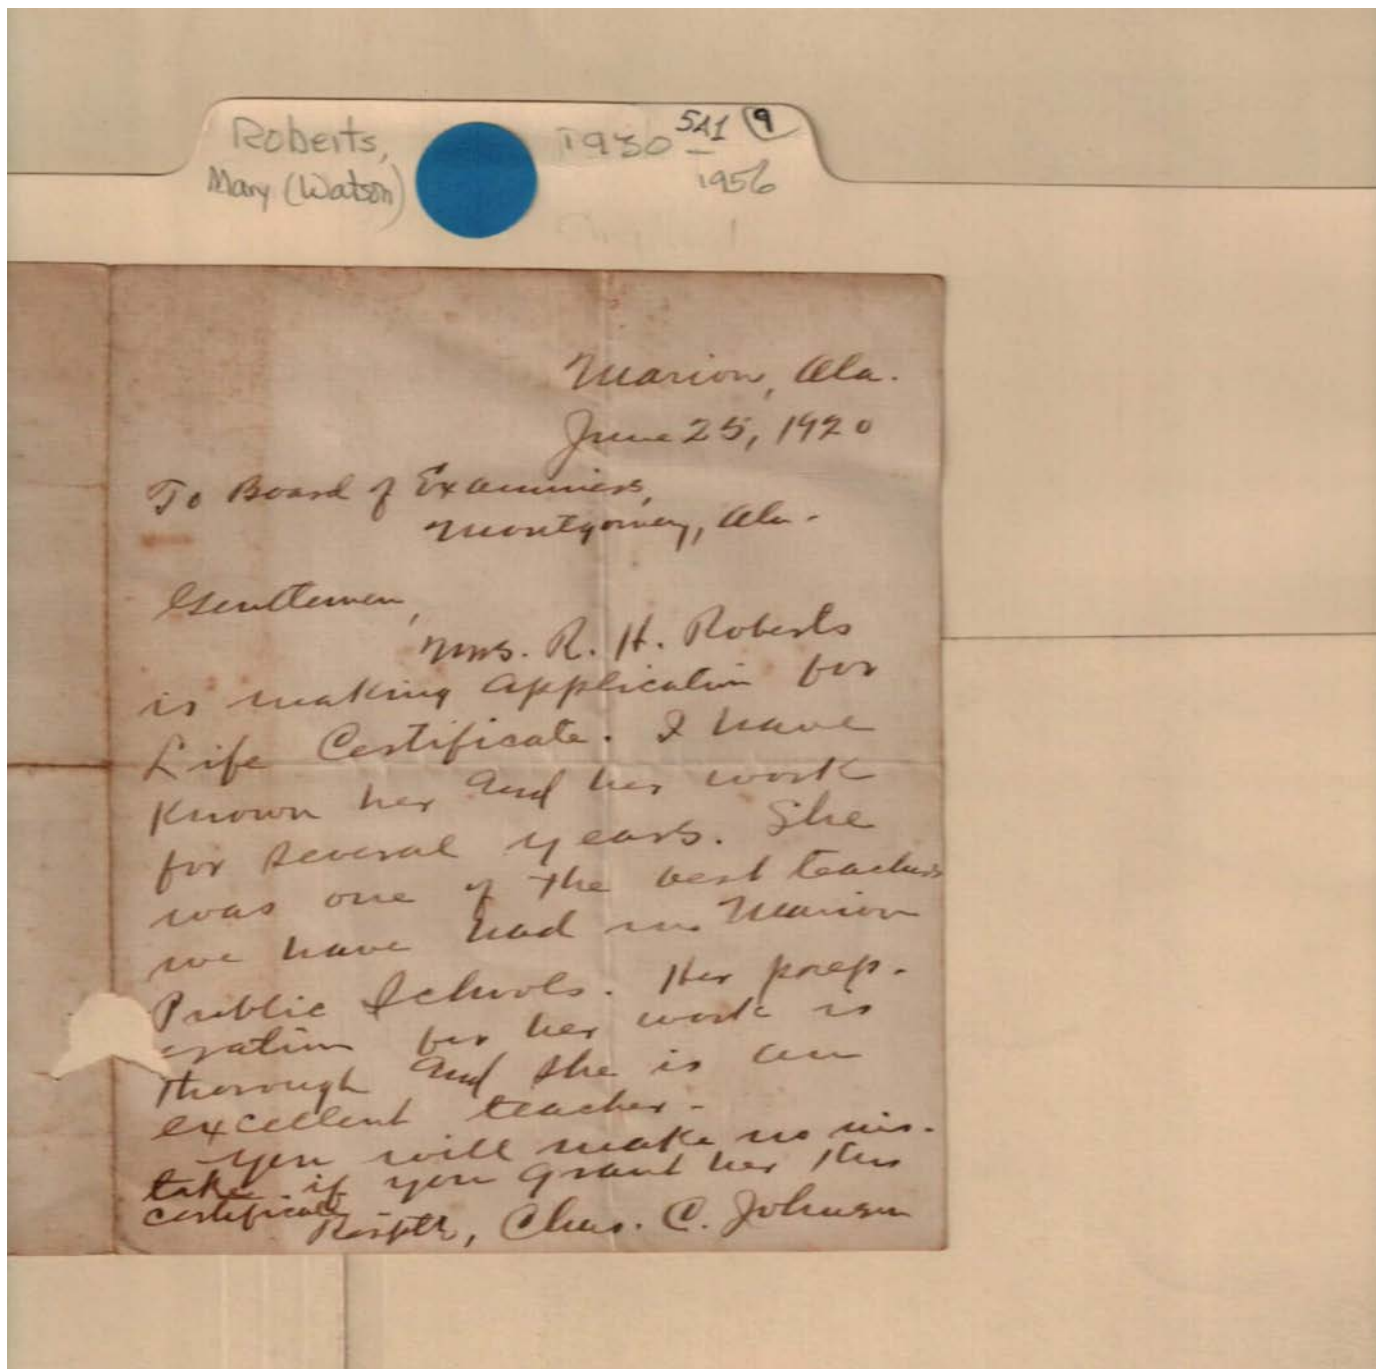 Roberts,
Mary (Watson)
1930 –
1956
5A1 9
Marion, Ala.
June 25, 1920
To Board of Examiners,
Montgomery, Ala.
Gentlemen,
Mrs. R. H. Roberts
is making application for
Life Certificate. I have
known her and her work
for several years. She
was one of the best teachers
we have had in Marion
Public Schools. Her prep-
eration for her work is
thorough and she is an
excellent teacher.
You will make no mis-
take if you grant her this
certificate
Respth, Chas. C. Johnson